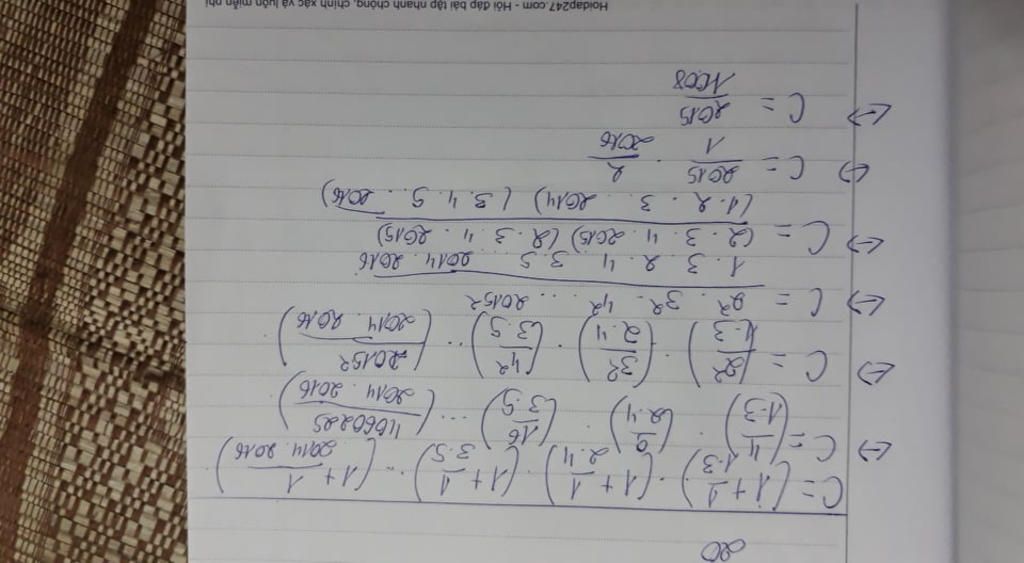 20
C = (1 + 1/1.3) . (1 + 1/2.4) . (1 + 1/3.5) ... (1 + 1/2014.2016)
<=> C = (4/1.3) . (9/2.4) . (16/3.5) ... (4060225/2014.2016)
<=> C = (2²/1.3) . (3²/2.4) . (4²/3.5) ... (2015²/2014.2016)
<=> C = 2² . 3² . 4² ... 2015² / 1 . 3 . 2 . 4 . 3 . 5 ... 2014 . 2016
<=> C = (2 . 3 . 4 . 2015) (2 . 3 . 4 . 2015) / (1 . 2 . 3 ... 2014) (3 . 4 . 5 ... 2016)
<=> C = 2015/1 . 2/2016
<=> C = 2015/1008
Hoidap247.com - Hỏi đáp bài tập nhanh chóng, chính xác và luôn miễn phí